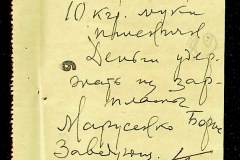 10 кгр. муки
пшеничн
Деньги удер
жать из зар
платы
Марусенко Борис
Заведующ.